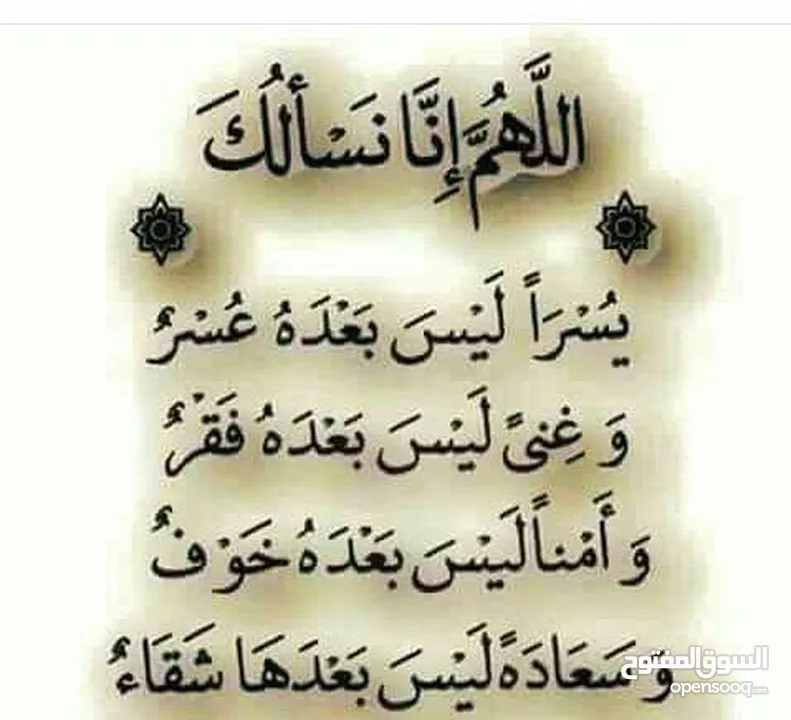 اللَّهُمَّ إِنَّا نَسْأَلُكَ
يُسْرَاً لَيْسَ بَعْدَهُ عُسْرٌ
وَ غِنىً لَيْسَ بَعْدَهُ فَقْرٌ
وَ أَمْناً لَيْسَ بَعْدَهُ خَوْفٌ
وَ سَعَادَةً لَيْسَ بَعْدَهَا شَقَاءٌ
السوق المفتوح
opensooq.com